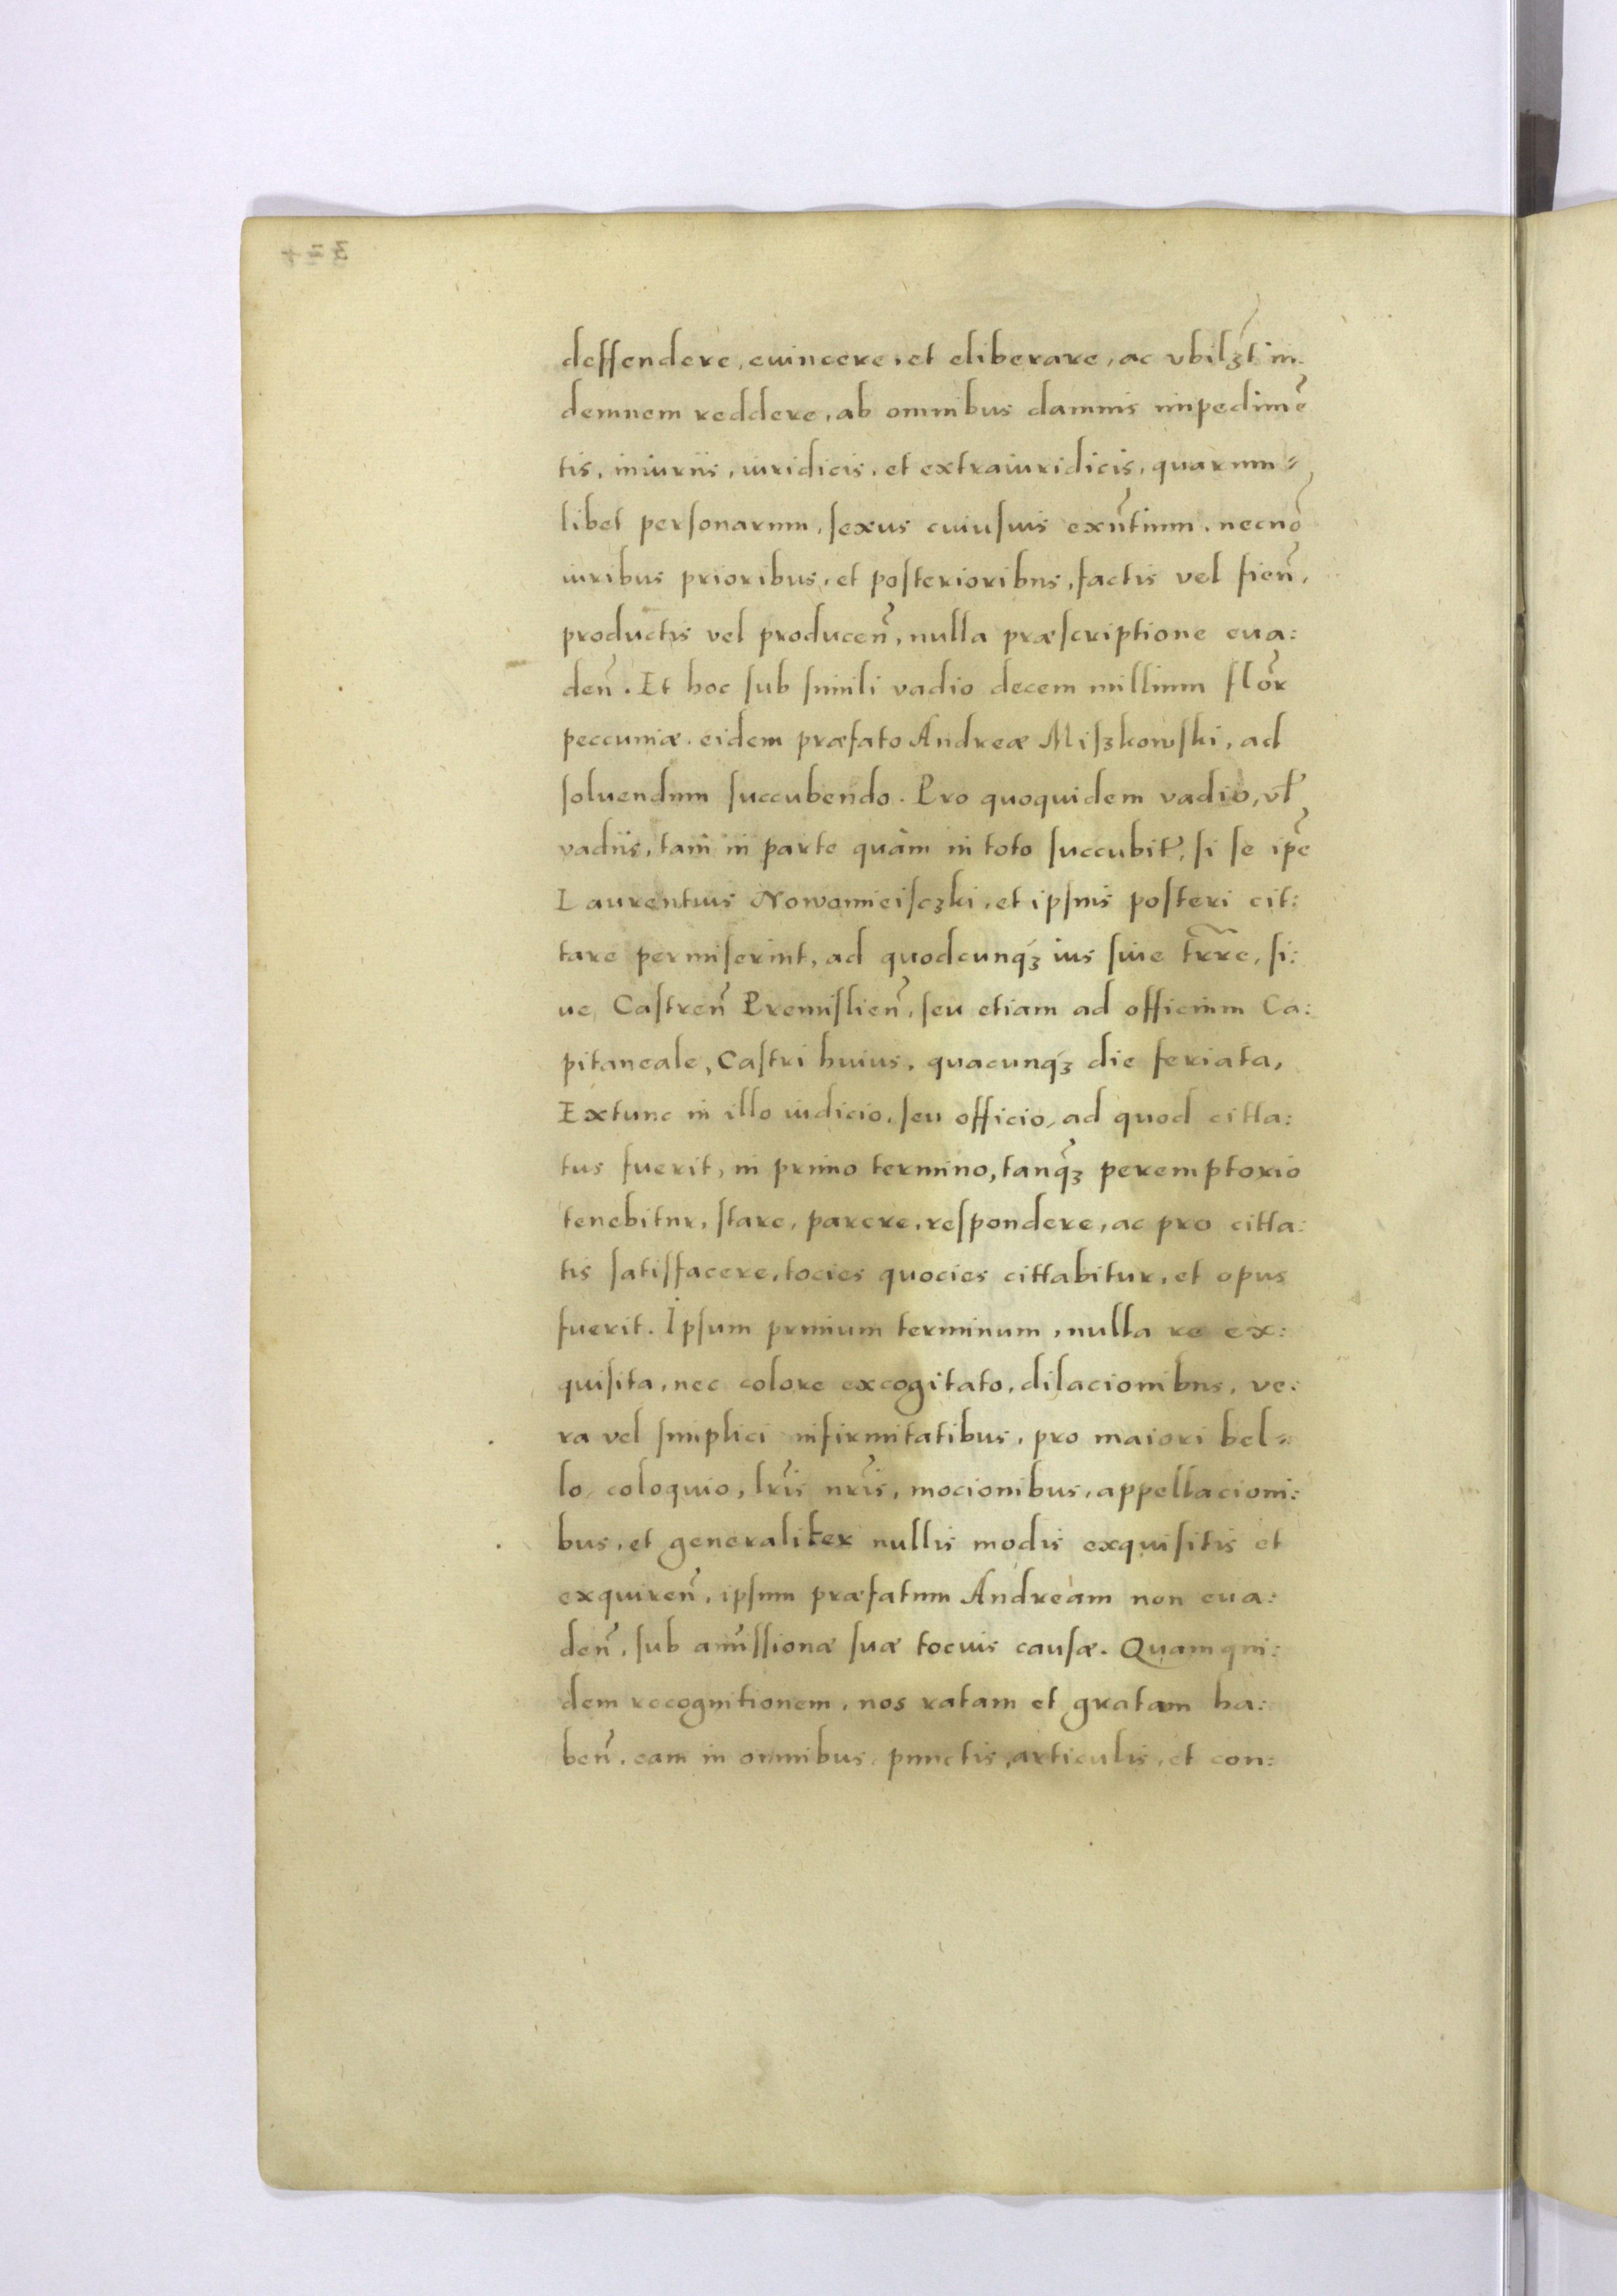 deffendere, euincere, et eliberare, ac vbilʒt in-
demnem reddere, ab omnibus damnis impedimẽ
tis, iniuriis, iuridicis, et extraiuridicis, quarum-
libet perſonarum, ſexus cuiuſuis exñtium, necnõ
iuribus prioribus, et poſterioribus, factis vel fieñ,
productis vel produceñ, nulla præſcriptione eua:
deñ. Et hoc ſub ſimili vadio decem millium flõr
peccuniæ, eidem præfato Andreæ Miſzkowſki, ad
ſoluendum ſuccubendo. Pro quoquidem vadio, vl̃
vadiis, tam in parte quàm in toto ſuccubit̃, ſi ſe ip̃e
Laurentius Nowomieiſczki, et ipſius poſteri cit:
tare permiſerint, ad quodcunqʒ ius ſiue tr̃r̃e, ſi:
ue Caſtreñ Premiſlieñ, ſeu etiam ad officium Ca:
pitaneale, Caſtri huius, quacunqʒ die feriata,
Extunc in illo iudicio, ſeu officio, ad quod citta:
tus fuerit, in primo termino, tanq̃ʒ peremptorio
tenebitur, ſtare, parere, reſpondere, ac pro citta:
tis ſatiſfacere, tocies quocies cittabitur, et opus
fuerit. Ipſum primum terminum, nulla re ex:
quiſita, nec colore excogitato, dilacionibus, ve:
ra vel ſimplici infirmitatibus, pro maiori bel-
lo, coloquio, lr̃is nr̃is, mocionibus, appellacioni:
bus, et generaliter nullis modis exquiſitis et
exquireñ, ipſum præfatum Andream non eua:
deñ, ſub am̃iſſionæ ſuæ tocius cauſæ. Quam qui:
dem recognitionem, nos ratam et gratam ha:
beñ, eam in omnibus, punctis, articulis, et con: